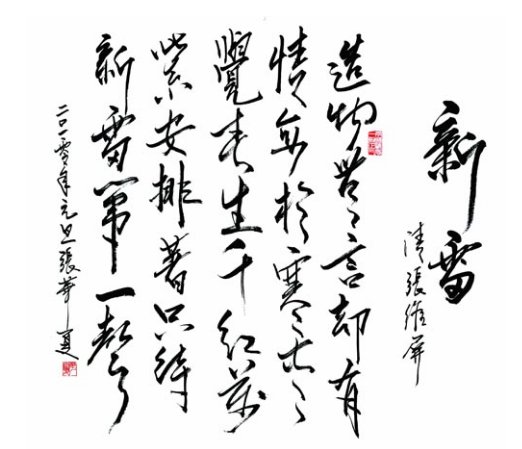 新雷
清張維屏
造物無言却有
情每於寒盡
覺春生千紅萬
紫安排著只待
新雷第一聲
二〇一零年元旦張